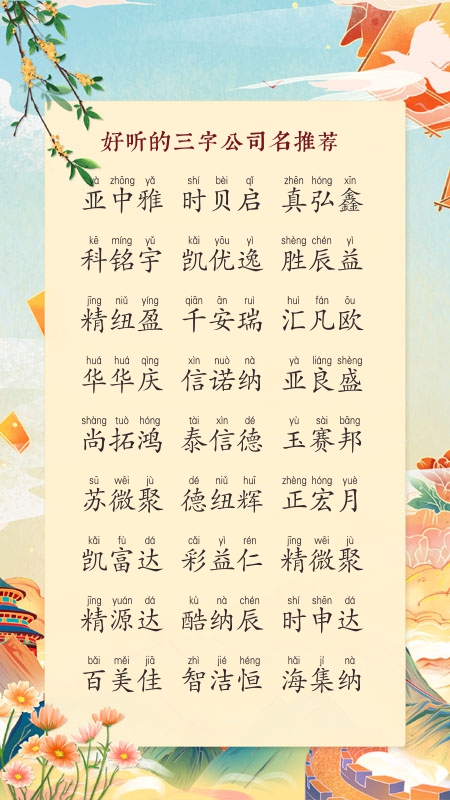 好听的三字公司名推荐
yà zhōng yǎ shí bèi qǐ zhēn hóng xīn
亚中雅 时贝启 真弘鑫
kē míng yǔ kǎi yōu yì shèng chén yì
科铭宇 凯优逸 胜辰益
jīng niǔ yíng qiān ān ruì huì fán ōu
精纽盈 千安瑞 汇凡欧
huá huá qìng xìn nuò nà yà liáng shèng
华华庆 信诺纳 亚良盛
shàng tuò hóng tài xìn dé yù sài bāng
尚拓鸿 泰信德 玉赛邦
sū wēi jù dé niǔ huī zhèng hóng yuè
苏微聚 德纽辉 正宏月
kǎi fù dá cǎi yì rén jīng wēi jù
凯富达 彩益仁 精微聚
jīng yuán dá kù nà chén shí shēn dá
精源达 酷纳辰 时申达
bǎi měi jiā zhì jié héng hǎi jí nà
百美佳 智洁恒 海集纳